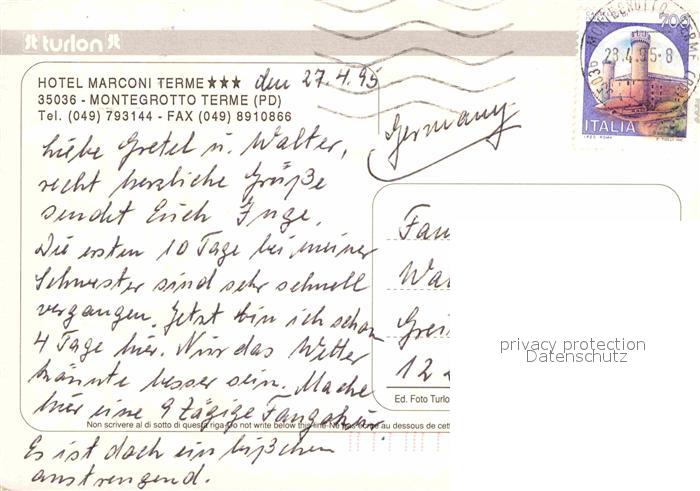 turlon
700
MONTEGROTTO TERME
35036
28.4.95-8
ITALIA
HOTEL MARCONI TERME ★★★ den 27.4.95
35036 - MONTEGROTTO TERME (PD)
Tel. (049) 793144 - FAX (049) 8910866
Germany
Liebe Gretel u. Walter,
recht herzliche Grüße
sendet Euch Inge.
Die ersten 10 Tage bei meiner
Schwester sind sehr schnell
vergangen. Jetzt bin ich schon
4 Tage hier. Nur das Wetter
könnte besser sein. Mache
hier eine 9 tägige Fangokur
Non scrivere al di sotto di questa riga-Do not write below this line-Ne pas écrire au dessous de cette
Es ist doch ein bißchen
anstrengend.
Fan
Wa
Grei
12
Ed. Foto Turlo
privacy protection
Datenschutz